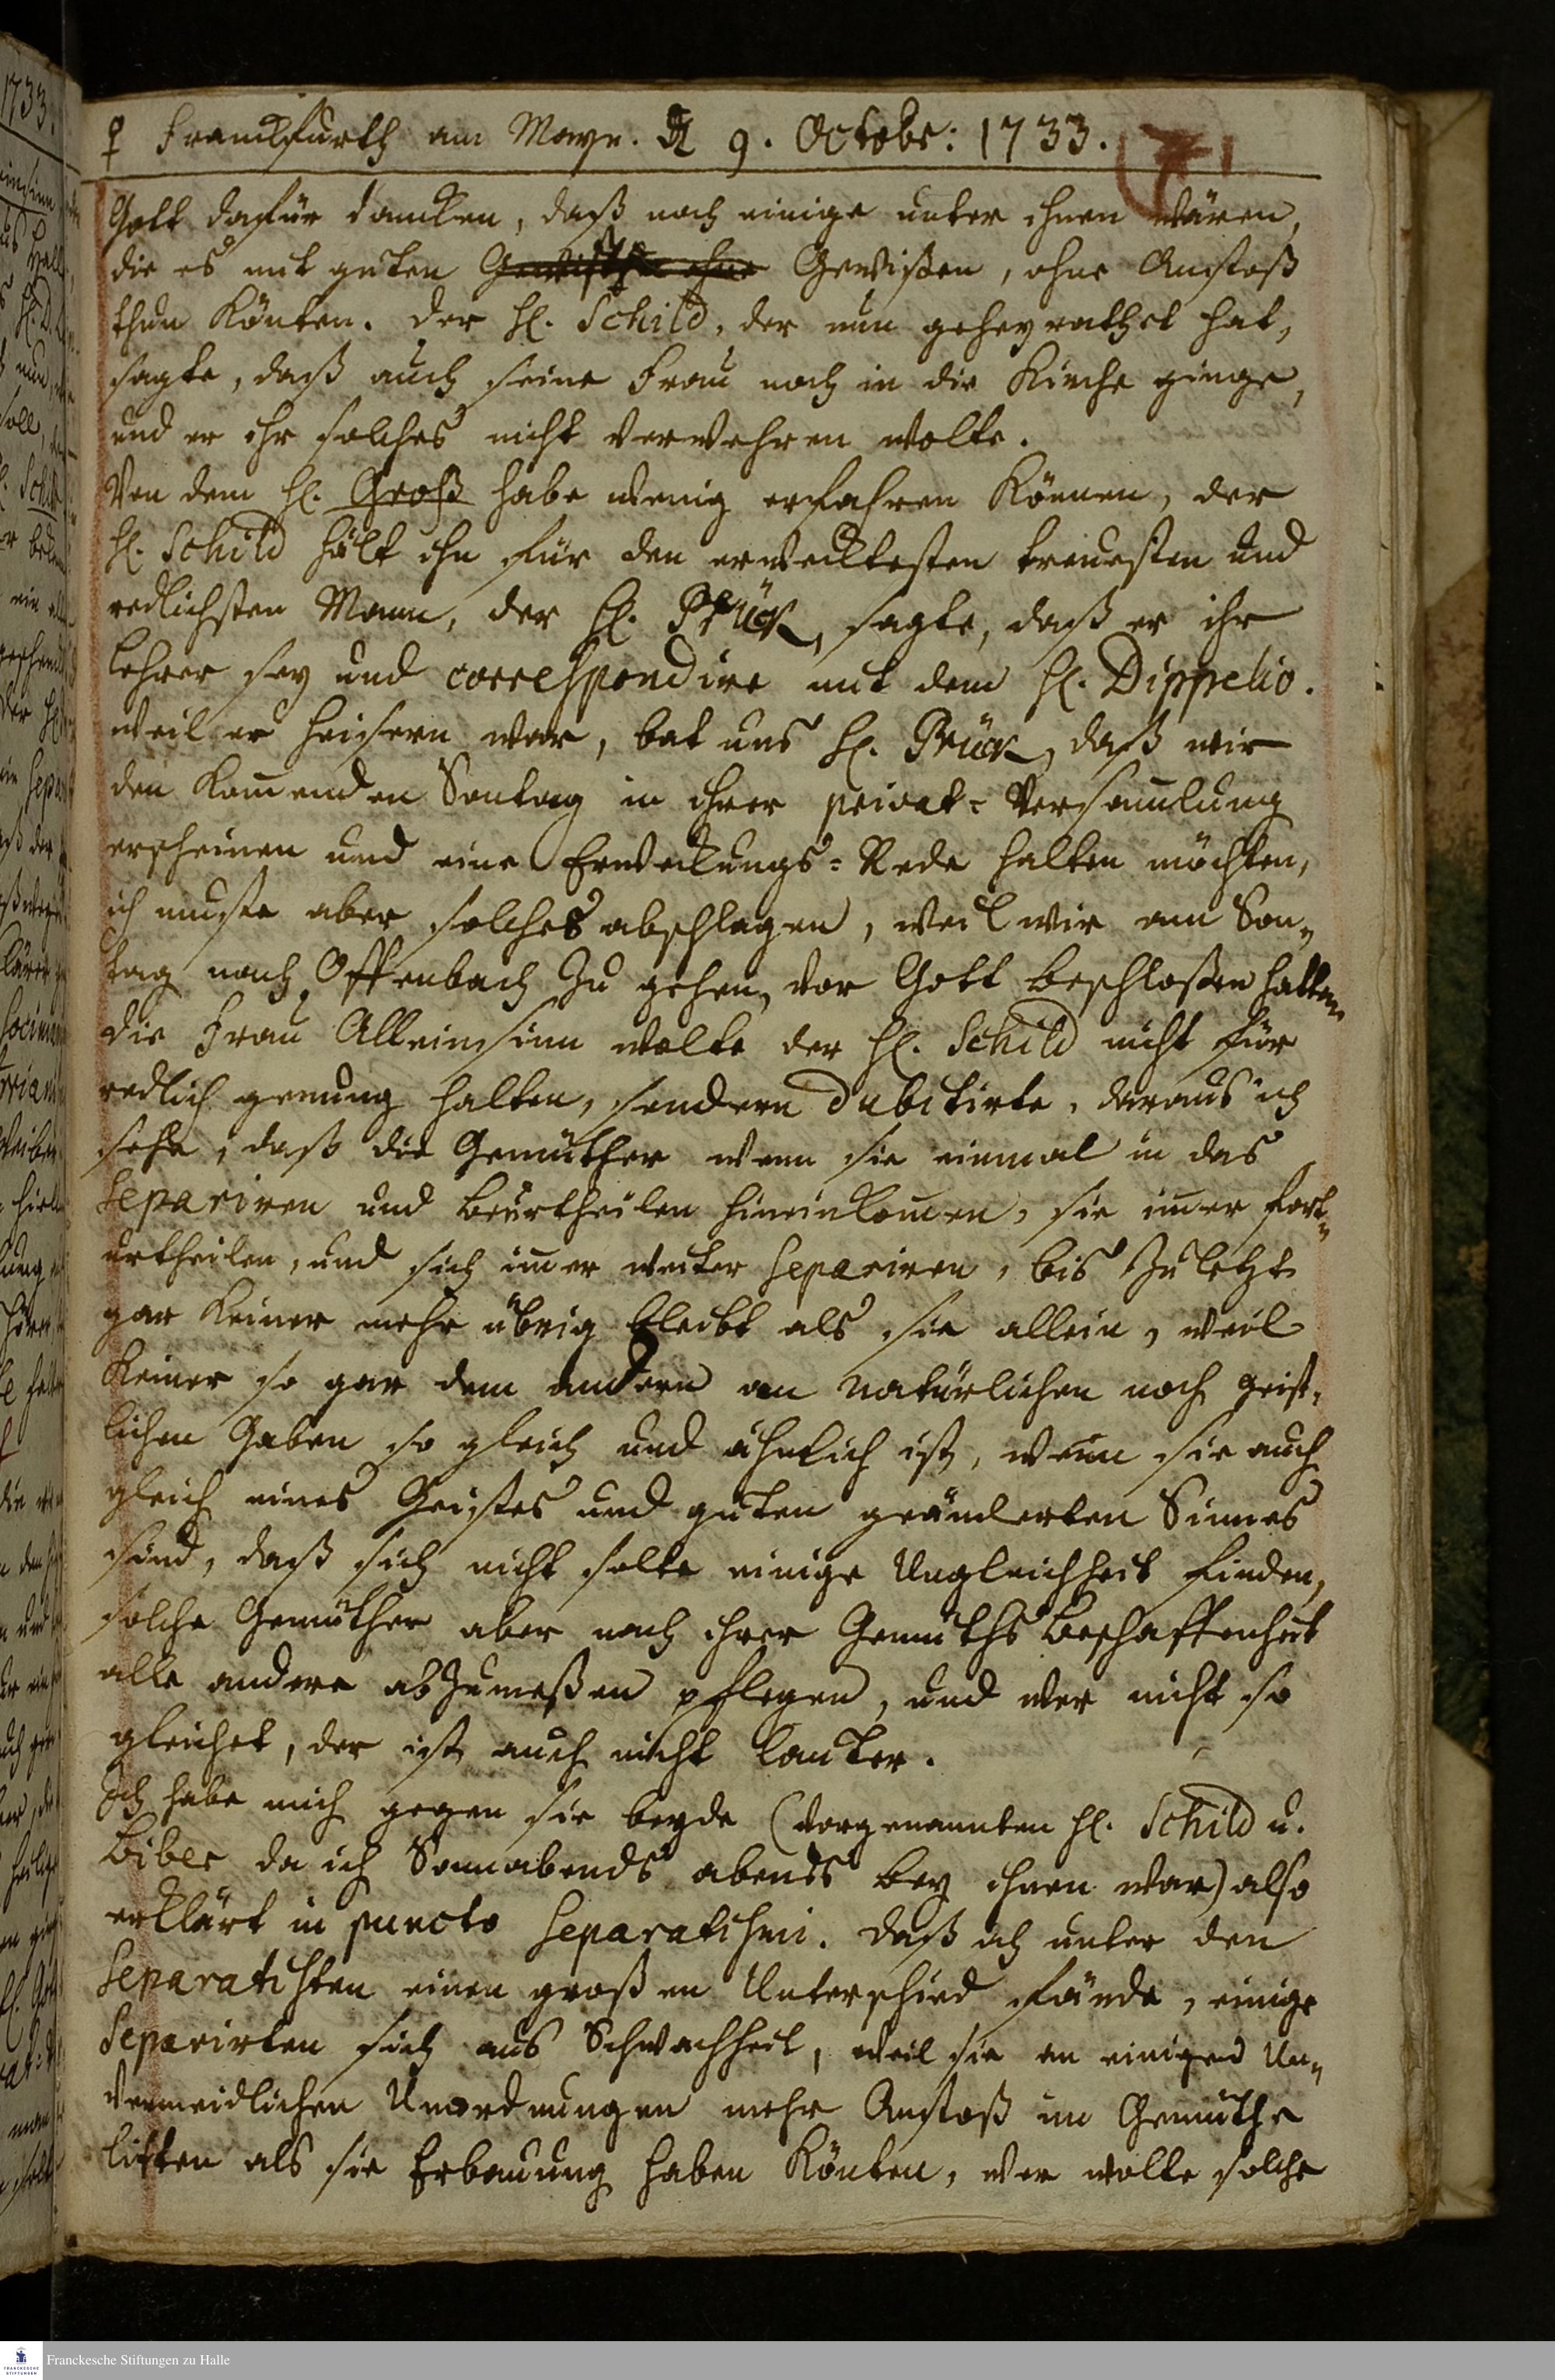 ♀ Franckfurth am Mayn. d 9. Octobr: 1733. (71
Gott dafür dancken, daß noch einige unter ihnen wären,
die es mit guten Gewißen ohne Gewißen, ohne Anstoß
thun Könten. Der H. Schild, der nun geheyrathet hat,
sagte, daß auch seine Frau noch in die Kirche ginge,
und er ihr solches nicht verwehren wolte.
Von dem H. Groß habe wenig erfahren Können, der
H. Schild hält ihn für den erwecktesten treuesten und
redlichsten Mann, der H. Prück, sagte, daß er ihr
Lehrer sey und correspondire mit dem H. Dippelio.
weil er heisern war, bat uns H. Prück, daß wir
den Kom̅enden Sontag in ihrer privat-Versam̅lung
erscheinen und eine Erweckungs-Rede halten möchten,
ich muste aber solches abschlagen, weil wir am Son-
tag nach Offenbach Zu gehen, vor Gott beschloßen hatten.
die Frau Alleinsinn wolte der H. Schild nicht für
redlich genung halten, sondern dubitirte, daraus ich
sehe, daß die Gemüther wenn sie einmal in das
Separiren und beurtheilen hineinkom̅en, sie im̅er fort-
urtheilen, und sich im̅er weiter separiren, bis Zuletzt
gar Keiner mehr übrig bleibt als sie allein, weil
Keiner so gar dem andern an Natürlichen noch geist-
lichen Gaben so gleich und ähnlich ist, wenn sie auch
gleich eines Geistes und guten geänderten Sinnes
sind, daß sich nicht solte einige Ungleichheit finden,
solche Gemüther aber nach ihrer Gemüths beschaffenheit
alle andere abzumeßen pflegen, und wer nicht so
gleichet, der ist auch nicht lauter.
Ich habe mich gegen sie beyde (vorgenannten H. Schild u.
Biber da ich Sonnabends abends bey ihnen war) also
erklärt in puncto Separatismi. Daß ich unter den
Separatisten einen großen Unterschied fände, einige
Separirten sich aus Schwachheit, weil sie an einigen Un-
vermeidlichen Unordnungen mehr Anstoß im Gemüthe
litten als sie Erbauung haben Könten, wer wolte solche
Franckesche Stiftungen zu Halle